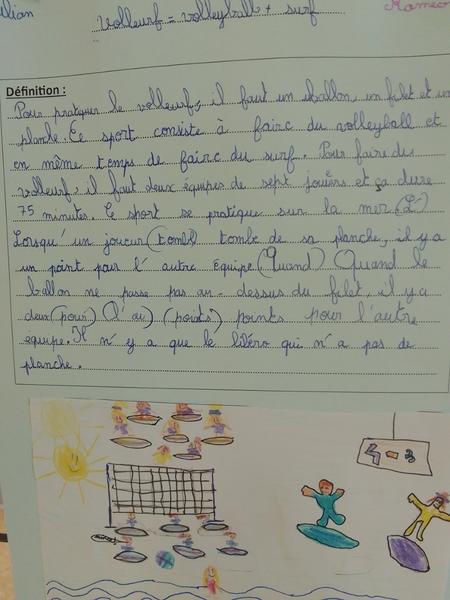 lian
Volleurf = volleyball + surf
Romeo
Définition :
Pour pratiquer le volleurf, il faut un ballon, un filet et un
planche. Ce sport consiste à faire du volleyball et
en même temps de faire du surf. Pour faire du
volleurf, il faut deux équipes de sept jouers et ça dure
75 minutes. Ce sport se pratique sur la mer. (L)
Lorsqu'un joueur (tombl) tombe de sa planche, il y a
un point pour l'autre équipe. (Quand) Quand le
ballon ne passe pas au-dessus du filet, il y a
deux (pour) (l'au) (points) points pour l'autre
équipe. Il n'y a que le libéro qui n'a pas de
planche.